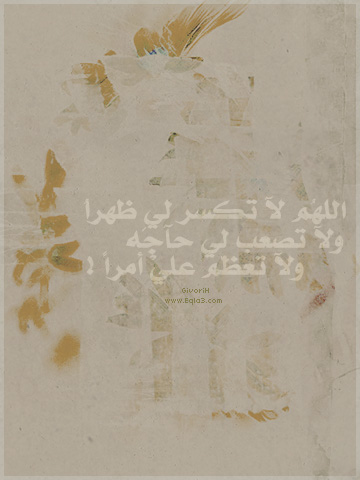 اللهم لآ تكسر لي ظهرا
ولآ تصعب لي حآجه
ولآ تعظم علي أمرا !
GivoriH
www.Eqla3.com